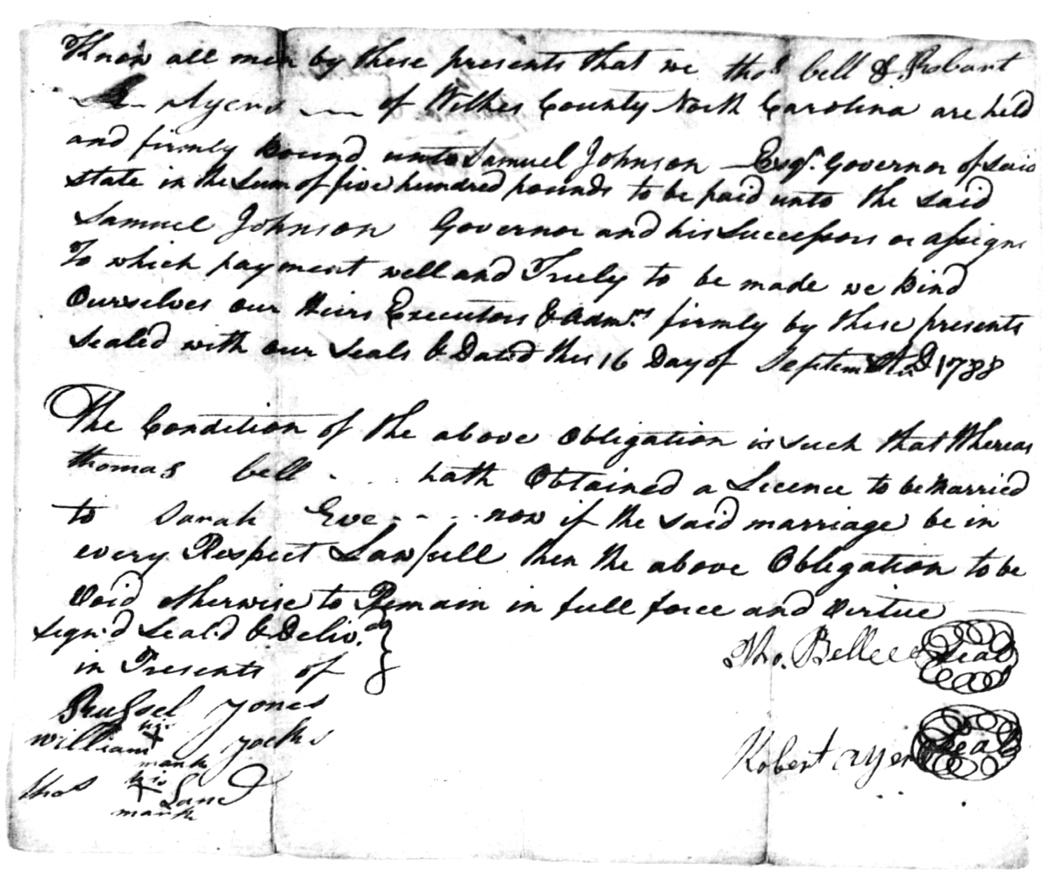 Know all men by these presents that we thos bell & Robart
Ayers of Wilkes County North Carolina are held
and firmly Bound unto Samuel Johnson Esqr. Governor of said
state in the Sum of five hundred pounds to be paid unto the said
Samuel Johnson Governor and his Successors or assigns
To which payment well and Truly to be made we Bind
Ourselves our Heirs Executors & Admrs firmly by these presents
Sealed with our Seals & Dated this 16 Day of Septem AD 1788
The Condition of the above Obligation is such that Whereas
thomas bell hath Obtained a Licence to be Married
to Sarah Eve - - - now if the said marriage be in
every Respect Lawfull then the above Obligation to be
Void otherwise to Remain in full force and Virtue
Sign'd Seal'd & Deliv.d
in Presents of
Tho. Bell Seal
Jones
his
William X
mark
Robert Ayers Seal
his
thos X Lane
mark